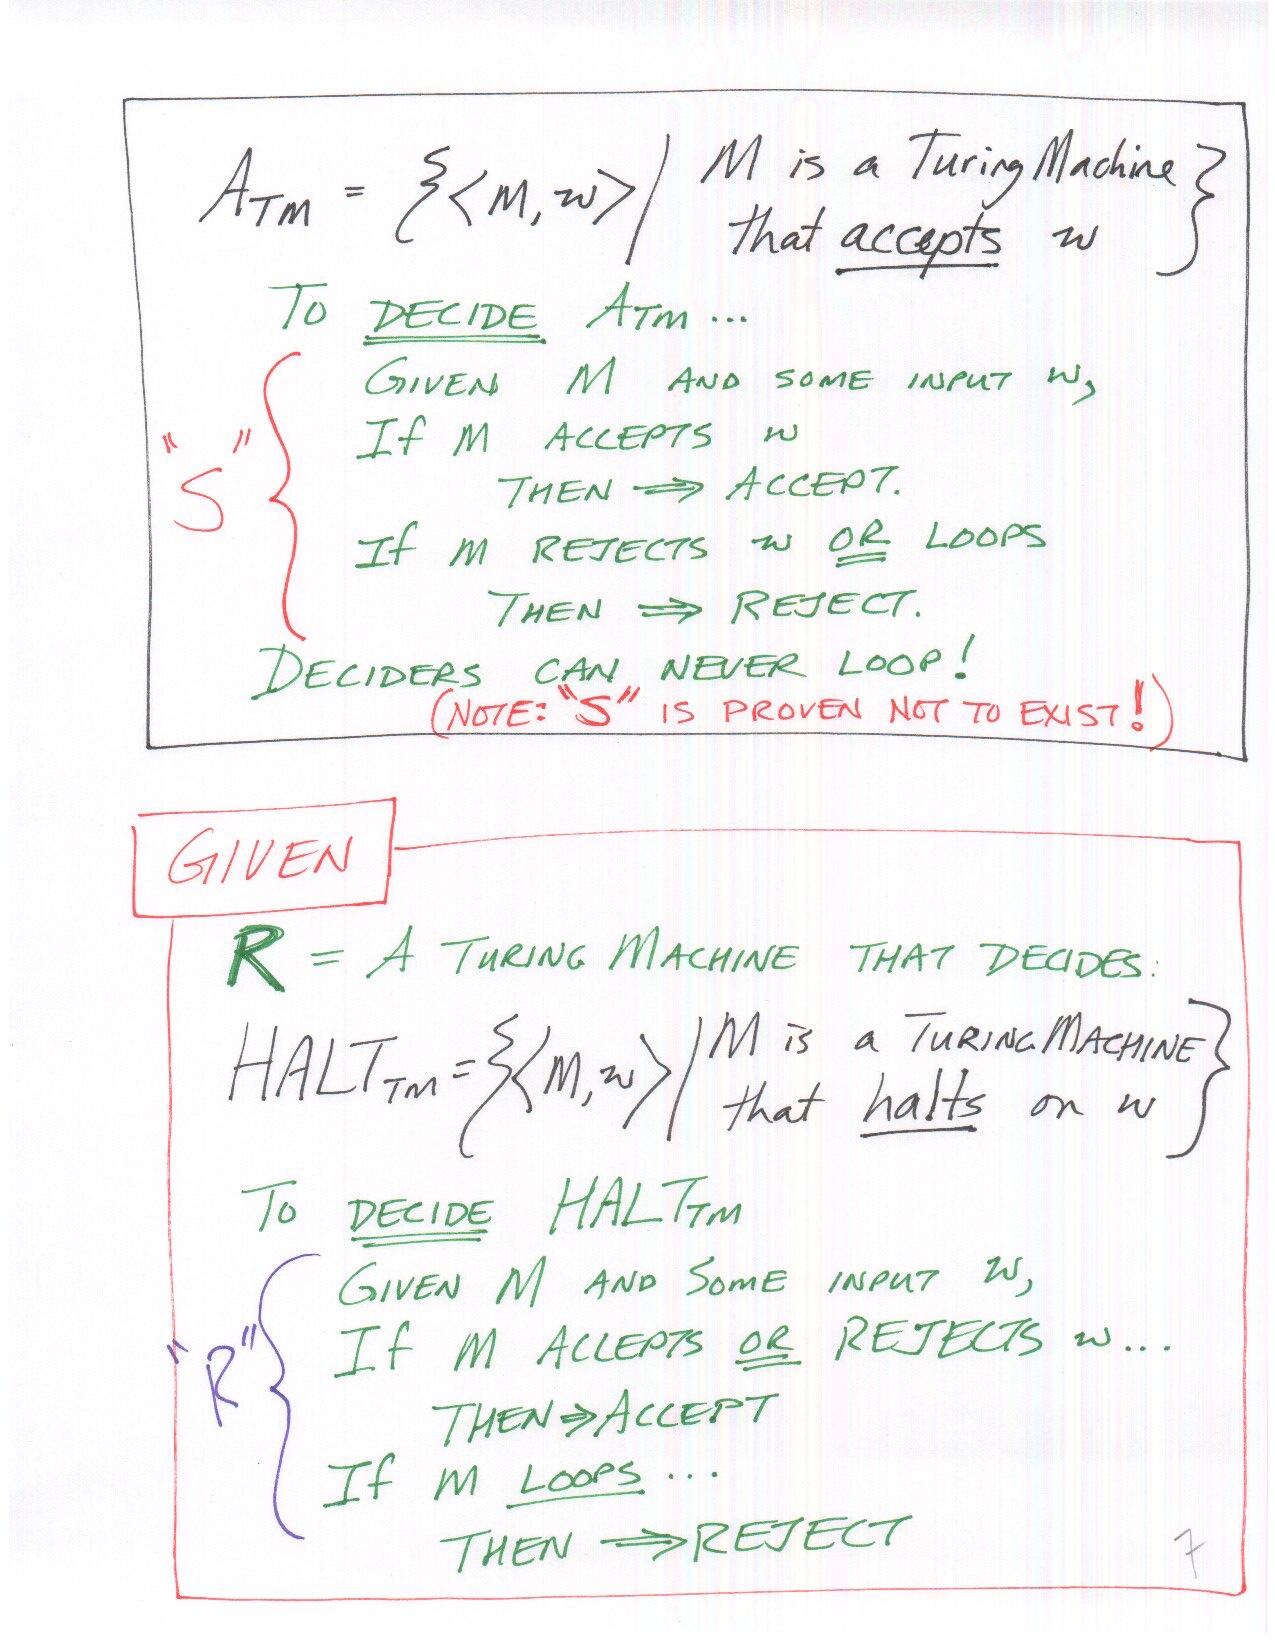 A_TM = {<M, w> | M is a Turing Machine
that accepts w}
To DECIDE A_TM ...
GIVEN M AND SOME INPUT w,
If M ACCEPTS w
THEN ⟹ ACCEPT.
"S"
If M REJECTS w OR LOOPS
THEN ⟹ REJECT.
DECIDERS CAN NEVER LOOP!
(NOTE: "S" IS PROVEN NOT TO EXIST!)
GIVEN
R = A TURING MACHINE THAT DECIDES:
HALT_TM = {<M, w> | M is a TURING MACHINE
that halts on w}
To DECIDE HALT_TM
GIVEN M AND SOME INPUT w,
If M ACCEPTS OR REJECTS w...
"R"
THEN ⟹ ACCEPT
If M LOOPS ...
THEN ⟹ REJECT
7